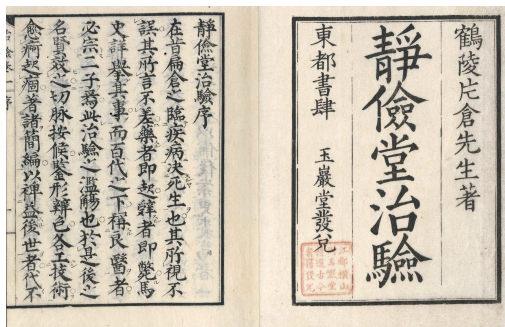 鶴陵片倉先生著
靜儉堂治驗
東都書肆 玉巖堂發兌
靜儉堂治驗序
在昔扁倉之臨疾病決死生也其所視不
誤其所言不差藥者即起辭者即斃馬
史詳擧其事而百代之下稱良醫者
必宗二子焉此治驗之濫觴也於是後之
名賢效之切脉按候鑒形辨色各工技術
愈痾起痼著諸簡編以裨益後世者代不